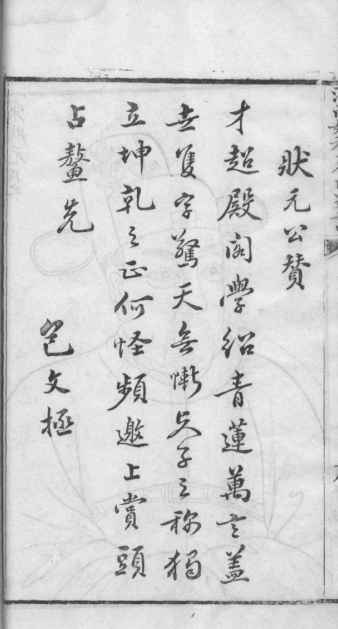 狀元公贊
才超殿閣學紹青蓮萬言蓋
世隻字驚天無慚夫子之稱獨
立坤乾之正何怪頻邀上賞頭
占鰲先
包文極